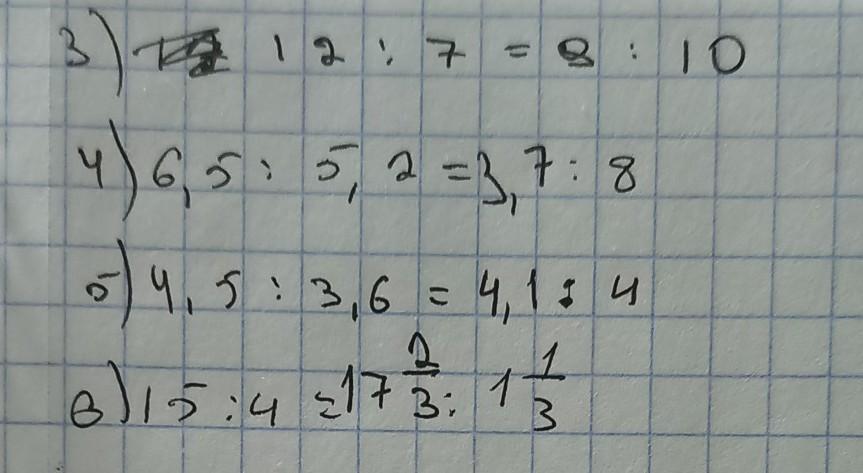 3) 12 : 7 = 8 : 10
4) 6,5 : 5,2 = 3,7 : 8
5) 4,5 : 3,6 = 4,1 : 4
6) 15 : 4 = 17 2/3 : 1 1/3